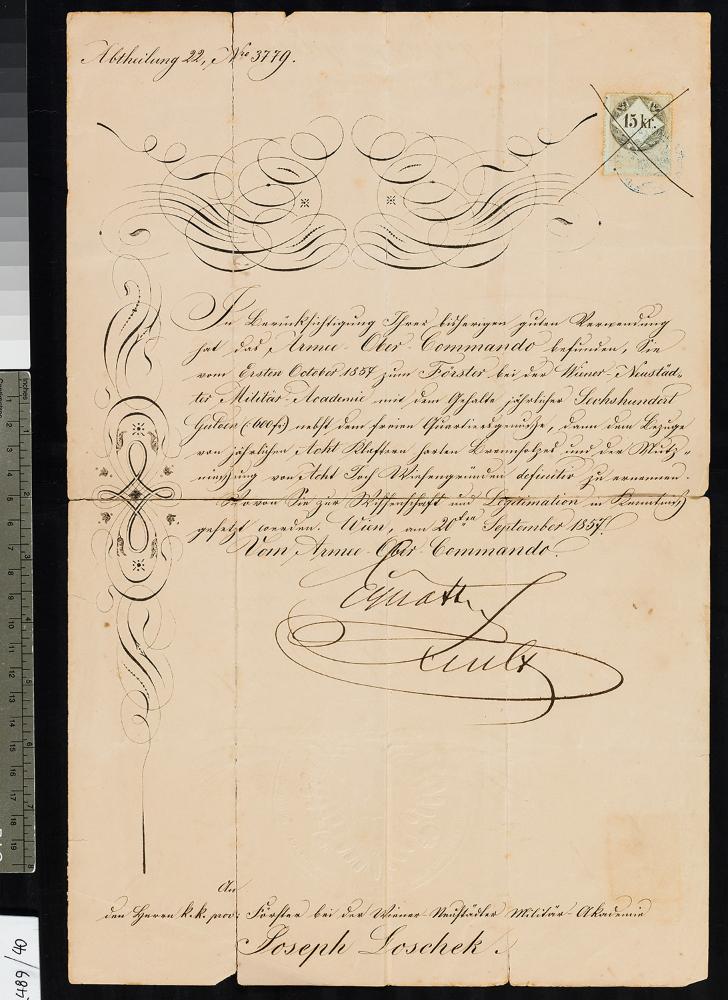 Abtheilung 22, Nro 3779.
15 kr.
In Berücksichtigung Ihrer bisherigen guten Verwendung
hat das Armee-Ober-Commando befunden, Sie
vom Ersten October 1857 zum Förster bei der Wiener-Neustäd-
ter Militär-Academie mit dem Gehalte jährlicher Sechshundert
Gulden (600 f) nebst dem freien Quartiersgenuße, dann dem Bezuge
von jährlichen Acht Klaftern harten Brennholzes und der Nutz-
nießung von Acht Joch Wiesengründen definitiv zu ernennen.
Wovon Sie zur Wissenschaft und Legitimation in Kenntniß
gesetzt werden. Wien, am 20ten September 1857.
Vom Armee-Ober-Commando.
An
den Herrn k.k. prov: Förster bei der Wiener Neustädter Militär-Akademie
Joseph Loschek.
489/40